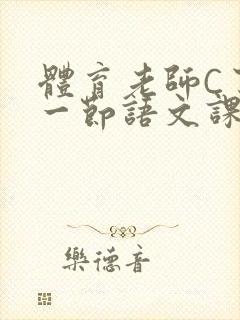 體育老師C
一節語文課
樂德音